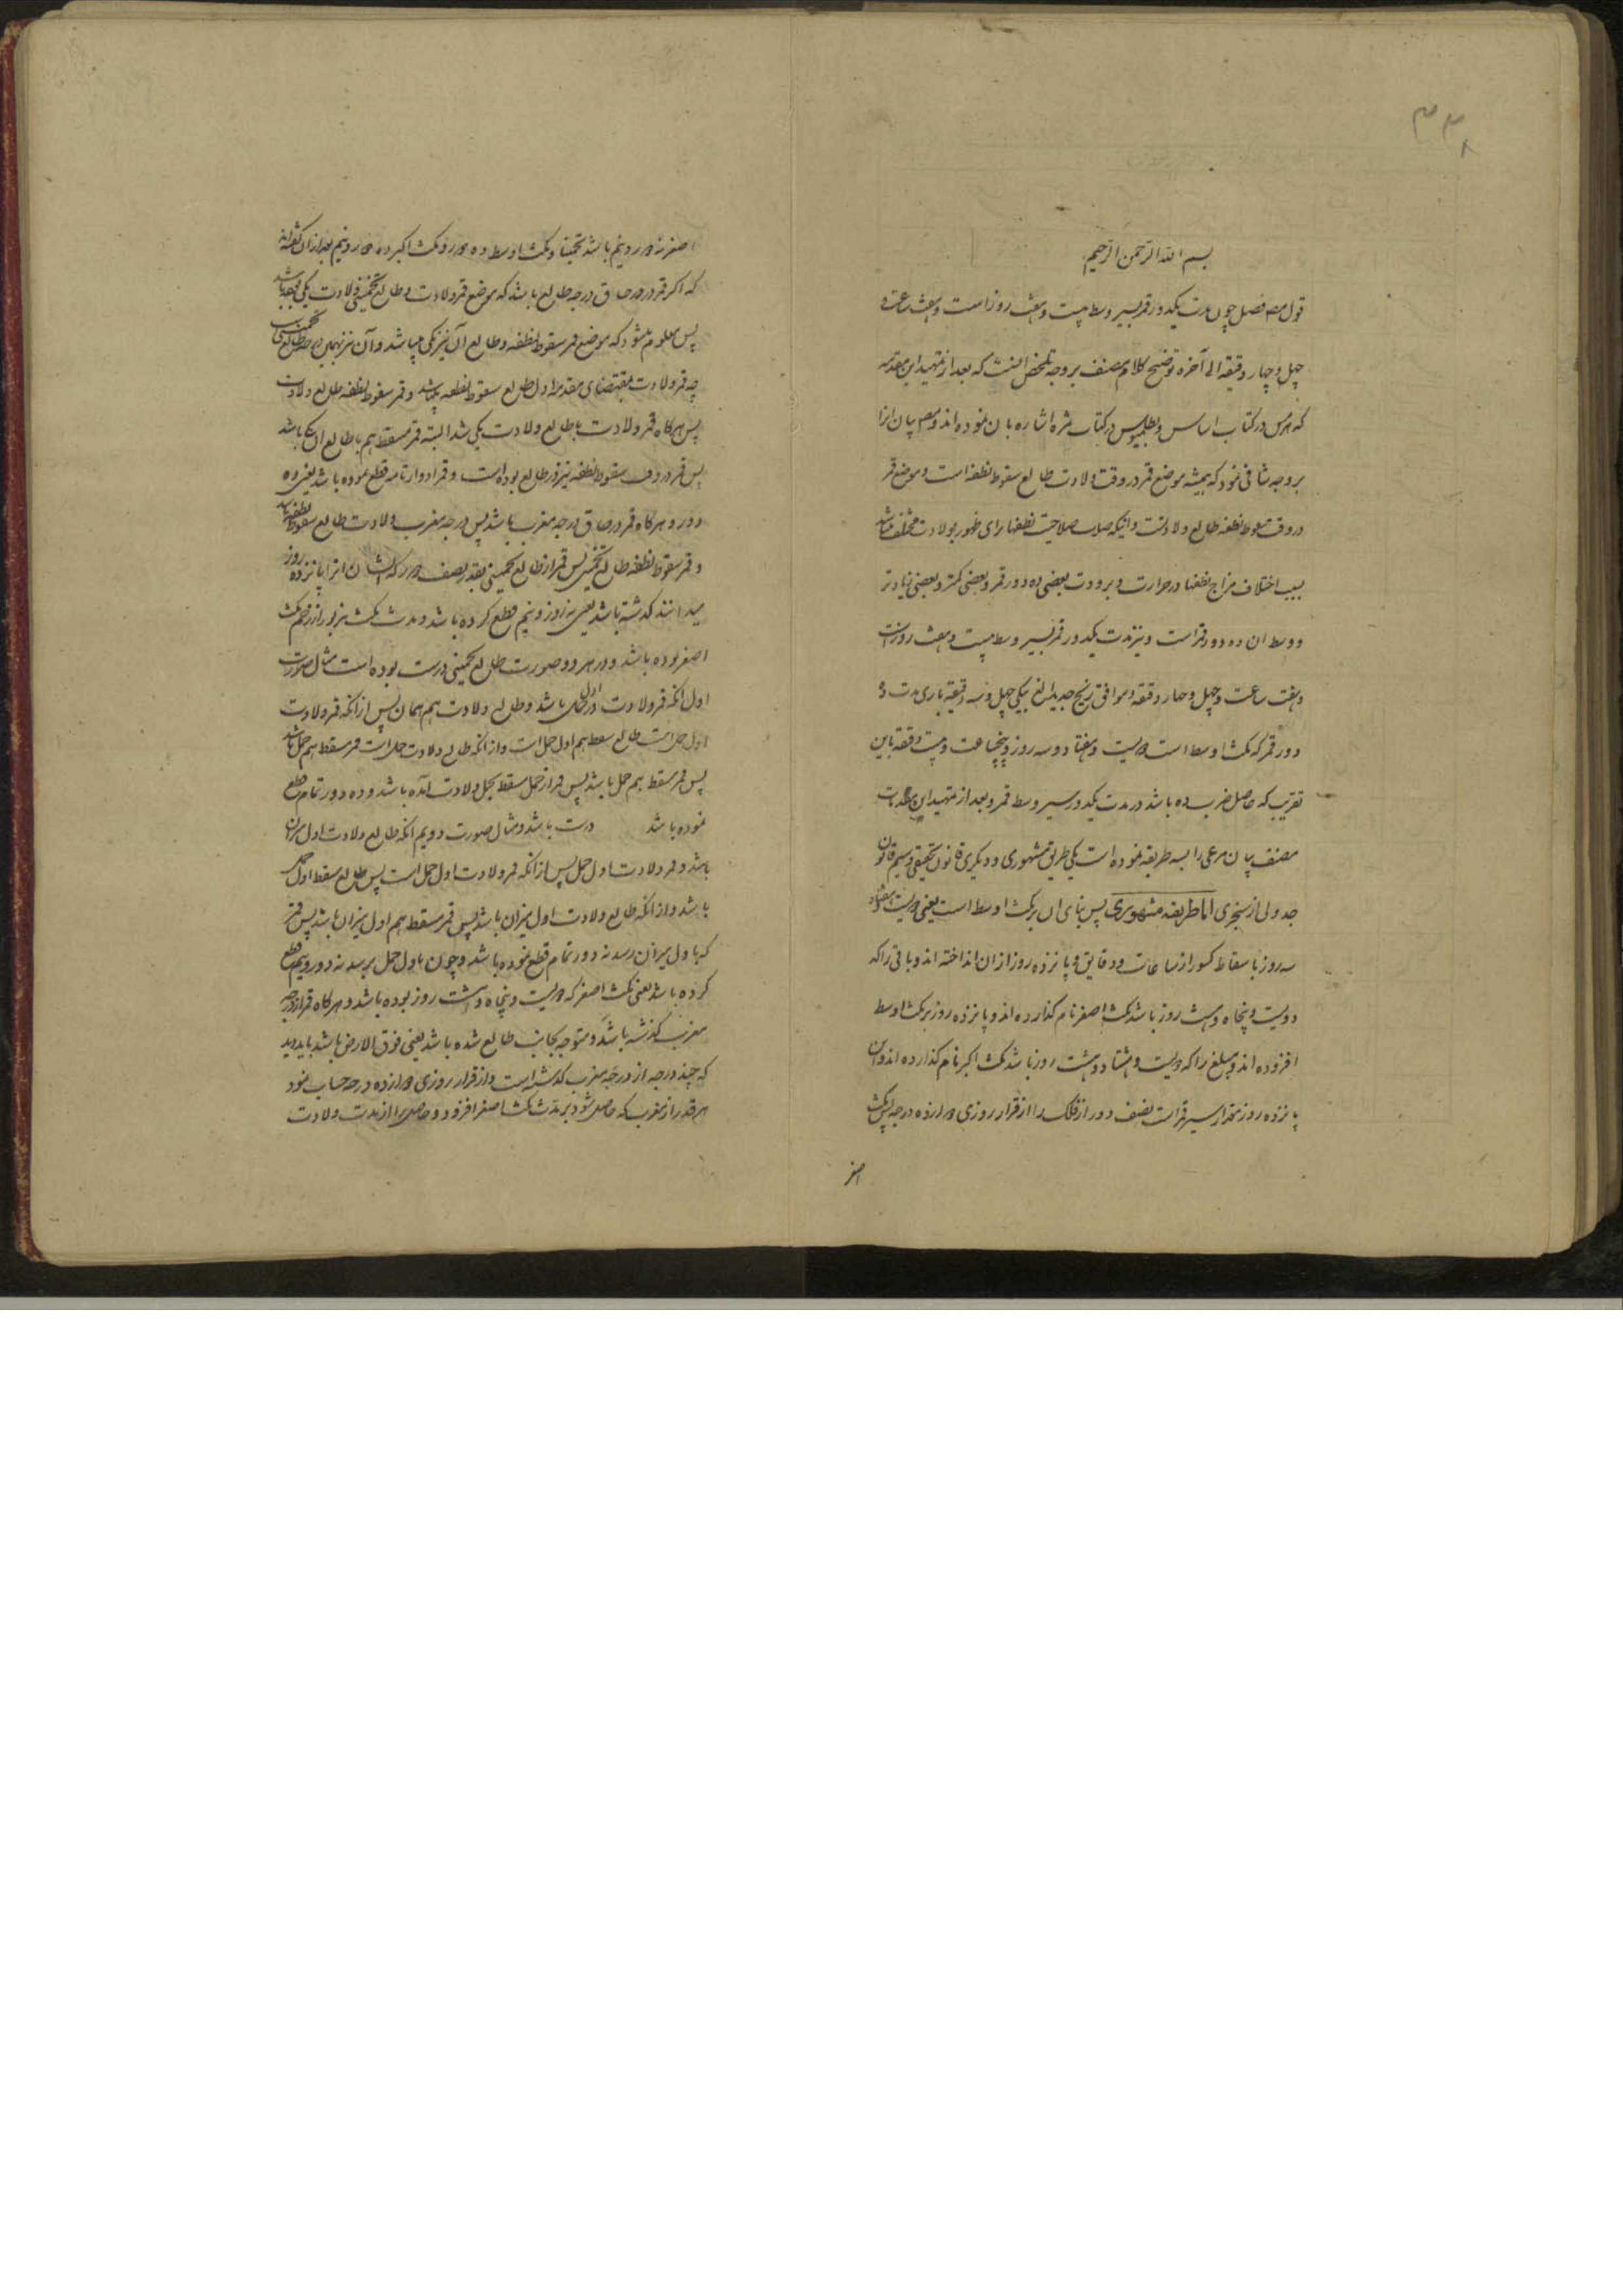 ۳۳۸
بسم الله الرحمن الرحیم
قول مصـ فصل چون مدت یکدور قمر بسیر وسط بیست و هفت روز است و هفت ساعت و
چهل و چهار دقیقه الی آخره توضیح کلام مصنف بر وجه تلخیص آنست که بعد از تمهید این مقدمه
که هرمس در کتاب اساس و بطلمیوس در کتاب ثمره اشاره بان نموده اند و مصـ بیان انرا
بر وجه شافی نمود که همیشه موضع قمر در وقت ولادت طالع سقوط نطفه است و موضع قمر
در وقت سقوط نطفه طالع ولادتست و اینکه صلاحیت نطفها برای ظهور بولادت مختلف میباشد
بسبب اختلاف مزاج نطفها در حرارت و برودت بعضی ده دور قمر و بعضی کمتر و بعضی زیادتر
و وسط ان ده دور قمر است و نیز مدت یکدور قمر بسیر وسط بیست و هفت روز است
و هفت ساعت و چهل و چهار دقیقه و موافق زیج جدید الغ بیکی چهل و سه دقیقه باری مدت ده
دور قمر که مکث اوسط است دویست و هفتاد و سه روز و پنجساعت و بیست دقیقه باین
تقریب که حاصل ضرب ده باشد در مدت یکدور سیر وسط قمر و بعد از تمهید این مقدمات
مصنف بیان مدعی را بسه طریقه نموده است یکی طریق مشهوری و دیگری قانون تحقیقی و سیم قانون
جدولی از سنجری اما طریقه مشهوری پس بنای ان بر مکث اوسط است یعنی دویست و هفتاد و
سه روز با سقاط کسور از ساعات و دقایق و پانزده روز از ان انداخته اند و باقی را که
دویست و پنجاه و هشت روز باشد مکث اصغر نام کذارده اند و پانزده روز بر مکث اوسط
افزوده اند و مبلغ را که دویست و هشتاد و هشت روز باشد مکث اکبر نام کذارده اند و این
پانزده روز مقدار سیر قمر است نصف دور از فلک را از قرار روزی دوازده درجه پس مکث
اصغر
اصغر نه دور و نیم باشد تخمینا و مکث اوسط ده دور و مکث اکبر ده دور و نیم بعد از ان گفته اند
که اکر قمر در حاق درجه طالع باشد که موضع قمر ولادت و طالع تخمینی ولادت یکی بوده باشد
پس معلوم میشود که موضع قمر سقوط نطفه و طالع آن نیز یکی میباشد و آن نیز همان درجه طالع تخمینی است
چه قمر ولادت بمقتضای مقدمه اول طالع سقوط نطفه میباشد و قمر سقوط نطفه طالع ولادت
پس هرکاه قمر ولادت با طالع ولادت یکی شد البته قمر مسقط هم با طالع ان یکی باشد
پس قمر در وقت سقوط نطفه نیز در طالع بوده است و قمر ادوار تامه قطع نموده باشد یعنی ده
دور و هرکاه قمر در حاق درجه مغرب باشد پس درجه مغرب ولادت طالع سقوط نطفه باشد
و قمر سقوط نطفه طالع تخمینی پس قمر از طالع تخمینی بقدر نصف دور که ایشان انرا پانزده روز
میدانند کذشته باشد یعنی نه دور و نیم قطع کرده باشد و مدت مکث مزبور از رحم مکث
اصغر بوده باشد و در هر دو صورت طالع تخمینی درست بوده است مثال صورت
اول انکه قمر ولادت در اول حمل باشد و طالع ولادت هم همان پس از انکه قمر ولادت
اول حمل است طالع مسقط هم اول حمل است و از انکه طالع ولادت حمل است قمر مسقط هم حمل باشد
پس قمر مسقط هم حمل باشد پس قمر از حمل مسقط بحمل ولادت آمده باشد و ده دور تمام قطع
نموده باشد درست باشد و مثال صورت دویم انکه طالع ولادت اول میزان
باشد و قمر ولادت اول حمل پس از انکه قمر ولادت اول حمل است پس طالع مسقط اول حمل
باشد و از انکه طالع ولادت اول میزان باشد پس قمر مسقط هم اول میزان باشد پس قمر
که باول میزان رسد نه دور تمام قطع نموده باشد و چون باول حمل برسد نه دور و نیم قطع
کرده باشد یعنی مکث اصغر که دویست و پنجاه و هشت روز بوده باشد و هرکاه قمر از درجه
مغرب کذشته باشد و متوجه بجانب طالع شده باشد یعنی فوق الارض باشد باید دید
که چند درجه از درجه مغرب کذشته است و از قرار روزی دوازده درجه حساب نمود
هر قدر از مغرب که حاصل شود بر مدت مکث اصغر افزود و حاصل را از مدت ولادت